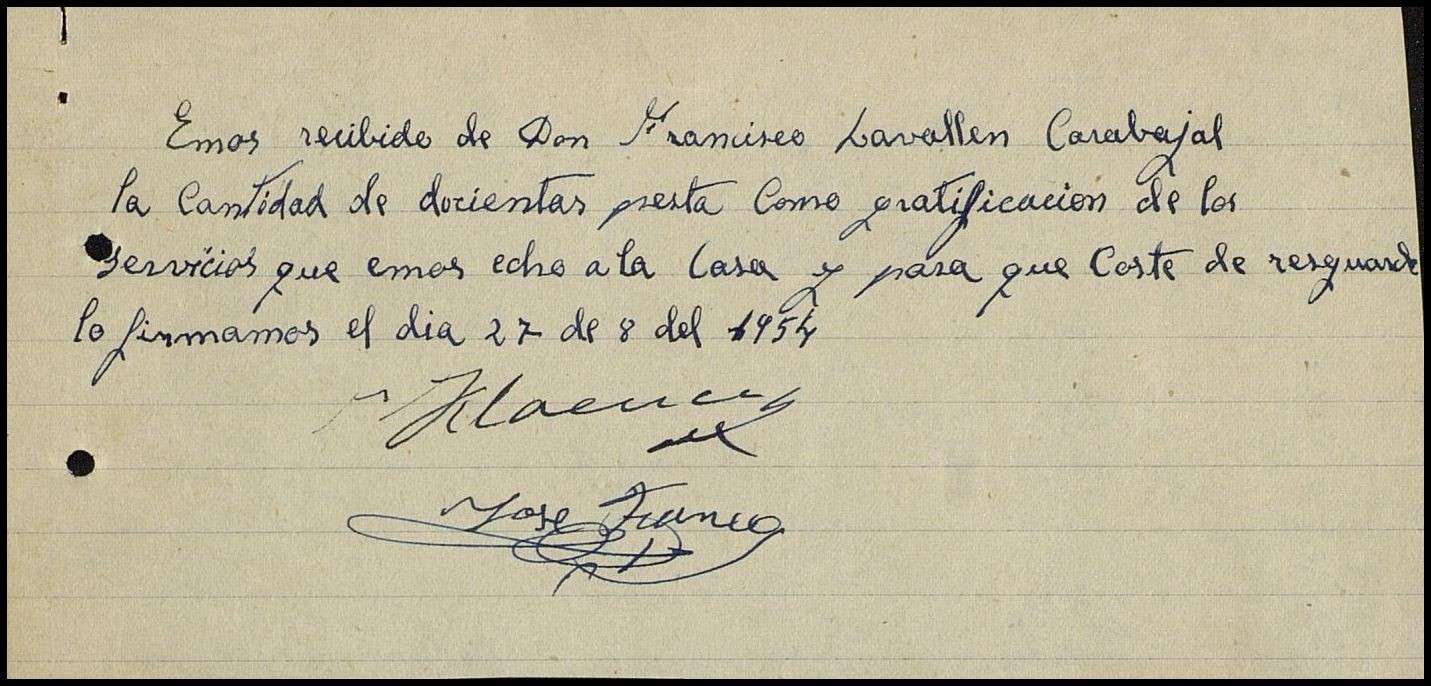 Emos recibido de Don Francisco Lavallen Carabajal
la Cantidad de docientas pesta Como gratificacion de los
servicios que emos echo a la Casa y para que Coste de resguarde
lo firmamos el dia 27 de 8 del 1954
Jose Franco